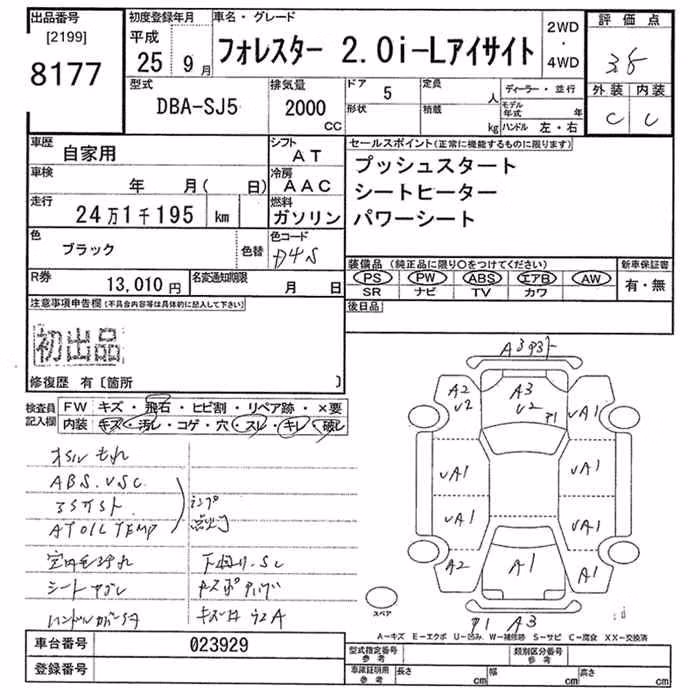 出品番号 初度登録年月 車名・グレード 2WD・4WD 評価点
[2199] 平成
8177 25年9月 フォレスター 2.0i-Lアイサイト
外装 内装
C C
型式 排気量 ドア 5 定員 人 ディーラー・並行
DBA-SJ5 2000 cc 形状 積載 kg モデル年式 年
ハンドル 左・右
車歴 自家用 シフト AT セールスポイント(正常に機能するものに限ります)
車検 年 月( 日) 冷房 AAC プッシュスタート
シートヒーター
走行 24万1千195 km 燃料 ガソリン パワーシート
色 ブラック 色替 色コード D4S
装備品 (純正品に限り○をつけてください) 新車保証書
R券 13,010円 名変通知期限 月 日 PS PW ABS エアB AW 有・無
SR ナビ TV カワ
注意事項申告欄(不具合内容等は具体的に記入して下さい) 後日品
初出品
修復歴 有〔箇所 〕
検査員記入欄 FW キズ・飛石・ヒビ割・リペア跡・×要
内装 キズ・汚レ・コゲ・穴・スレ・キレ・破レ
オイルもれ
ABS.VSC
AT OIL TEMP
A3
A2 A3 A1
U2 U2
P1
UA1 UA1
UA1 UA1
A2 A1 A1
P1 A3
スペア
A-キズ E-エクボ U-凹み W-補修跡 S-サビ C-腐食 XX-交換済
車台番号 023929 型式指定番号 参考 類別区分番号 参考
登録番号 車庫証明用 参考 長さ cm 幅 cm 高さ cm